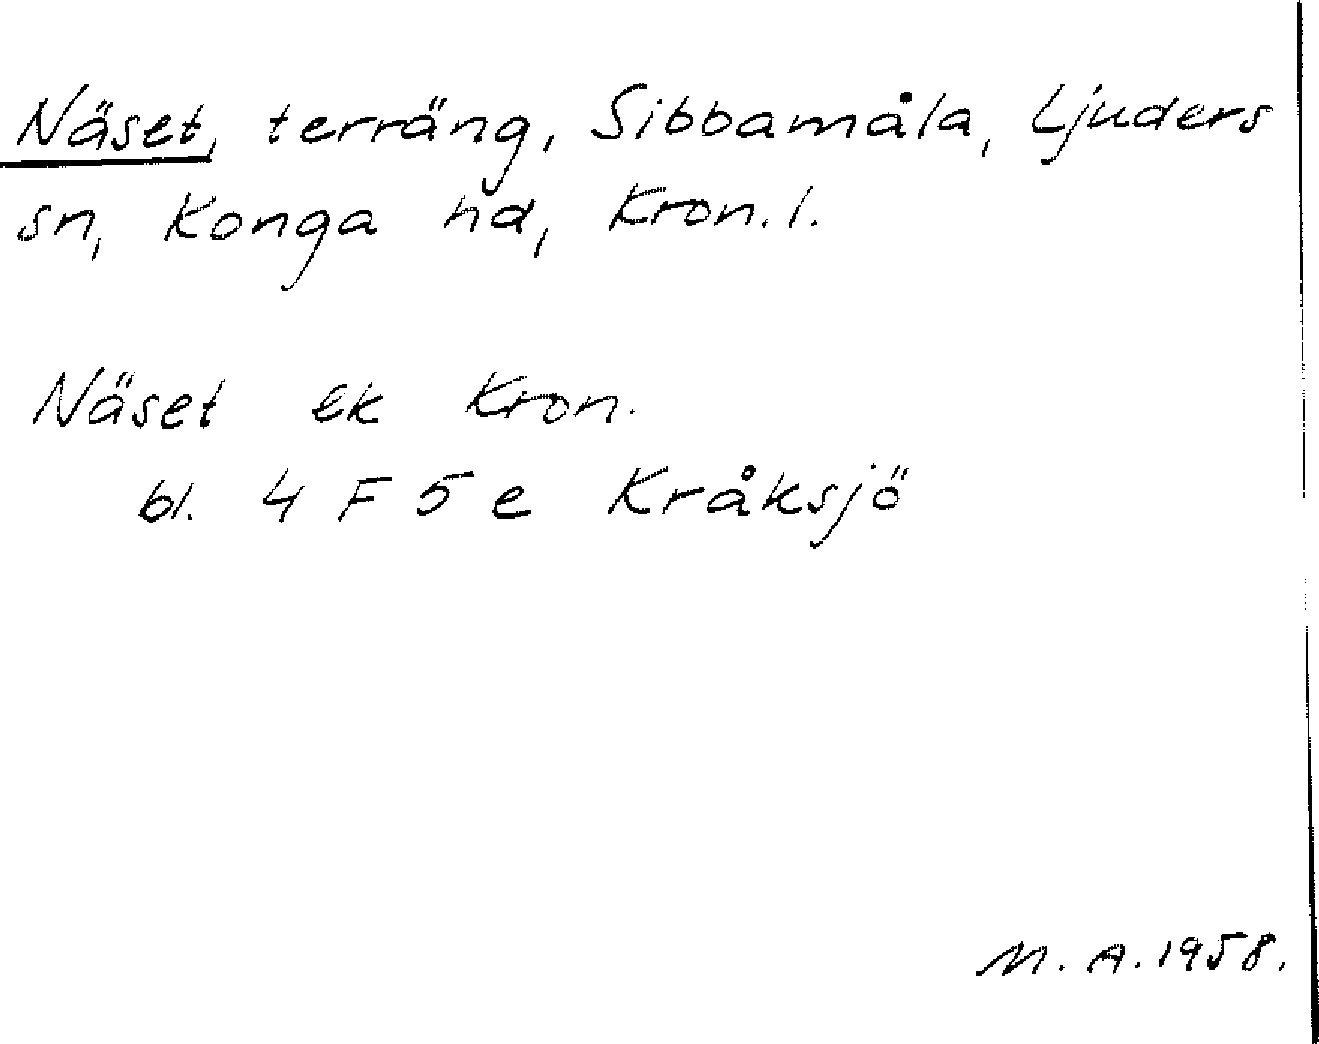 Näset, terräng, Sibbamåla, Ljuders
sn, Konga hd, Kron. l.
Näset ek Kron.
bl. 4 F 5 e Kråksjö
M. A. 1958.